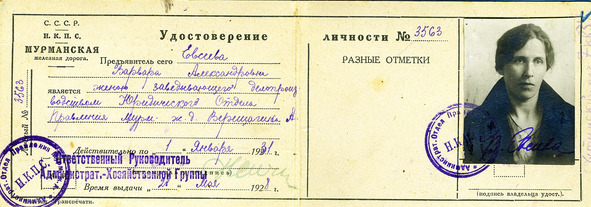 С. С. С. Р.
Н. К. П. С.
МУРМАНСКАЯ
железная дорога.
Удостоверение
ЛИЧНОСТИ № 3563
Предъявитель сего Евсеева
Варвара Александровна
является женою заведывающего делопроиз
водством Юридического Отдела
Правления Мурм. ж. д. Верещагина А.
3563
Действительно по „ 1 Января 1931 г.
Ответственный Руководитель
Администрат.-Хозяйственной Группы
Время выдачи „ 21 Мая 1928 г.
Н.К.П.С.
РАЗНЫЕ ОТМЕТКИ
Н.К.П.С.
(подпись владельца удост.)